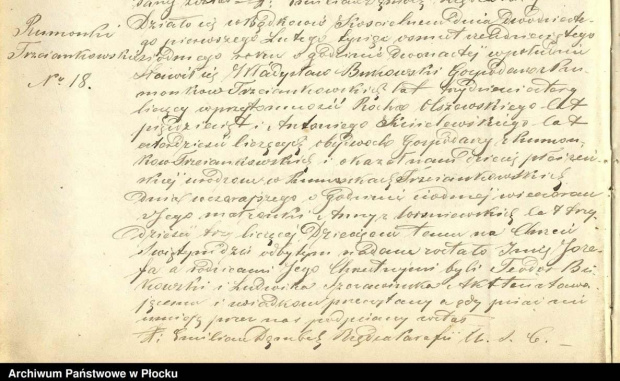 Rumonki
Trzciankowskie
No 18.
Działo się w Rządkowie Kościelnem dnia Dwódzieste-
go pierwszego Lutego tysiąc ośmset
siódmego roku o godzinie Dwonastej w południe
Stawił się Władysław Bukowski Gospodarz z Ru-
monków Trzciankowskich lat trzydzieści cztery
liczący w przytomności Rocha Olszowskiego lat
pięćdziesiąt i Antoniego lat
liczących obydwoch Gospodarzy z Rumon-
ków Trzciankowskich i okazał nam dziecię płci żeń-
skiej urodzone w Rumunkach Trzciankowskich
dnia wczorajszego o godzinie siódmej wieczorem
z Jego małżonki Anny z Wiśniewskich lat trzy-
dzieści trzy liczącej Dziecięciu temu na Chrzcie
Świętym dziś odbytym nadane zostało Imię Józe-
fa a rodzicami Jego Chrzestnymi byli Teodor Bu-
kowski i Ludwika Akt ten stawa-
jącemu i świadkom przeczytany a gdy pisać nie
umieją przez nas podpisany został
X. Emilian Rządca Parafii U. S. C.
Archiwum Państwowe w Płocku